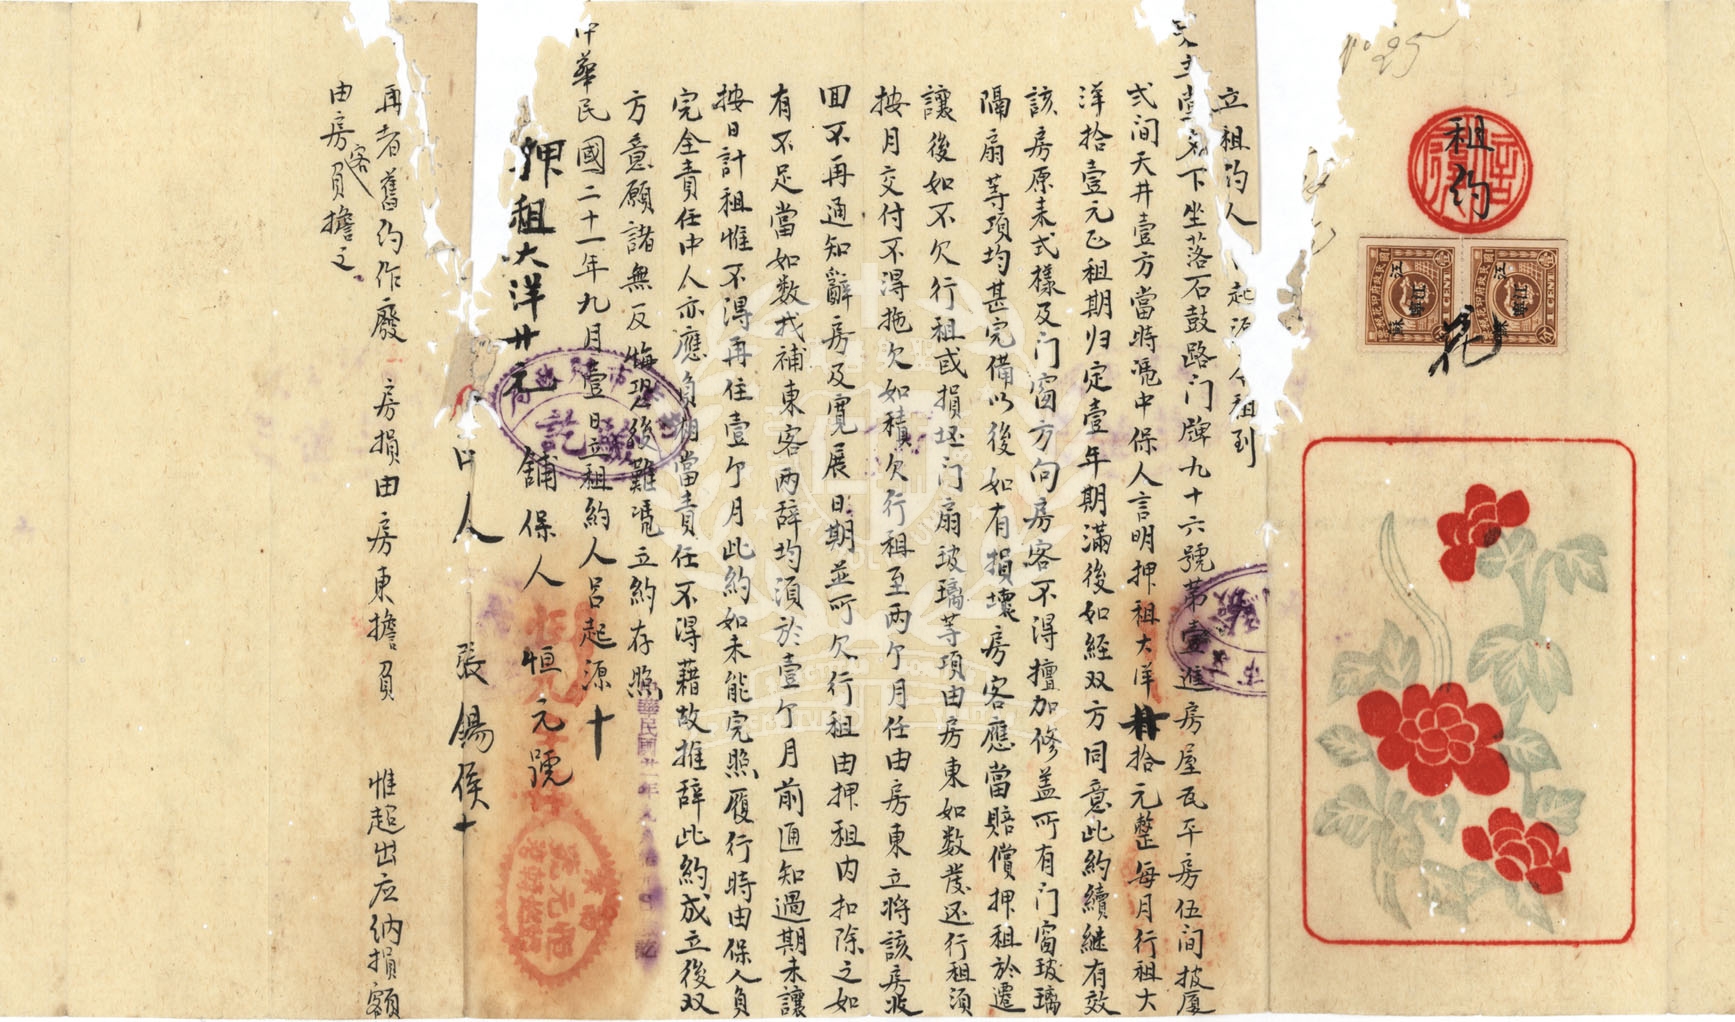 租約
花
立租約人 起源今租到
天主堂 下坐落石鼓路门牌九十六號苐壹進房屋瓦平房伍间披厦
弍间天井壹方當時凴中保人言明押租大洋 拾元整每月行租大
洋拾壹元正租期归定壹年期滿後如經双方同意此約續継有效
該房原来式樣及门窗方向房客不得擅加修盖所有门窗玻璃
隔扇等項均甚完備以後如有損壞房客應當賠償押租於遷
讓後如不欠行租或損坯门扇玻璃等項由房東如数發还行租須
按月交付不得拖欠如積欠行租至两个月任由房東立將該房收
回不再通知辭房及寬展日期並所欠行租由押租内扣除之如
有不足當如数找補東客两辞均須於壹个月前通知過期未讓
按日計租惟不得再住壹个月此約如未能完照履行時由保人負
完全責任中人亦應負相當責任不得藉故推辞此約成立後双
方意願諸無反悔恐後難凴立約存照
中華民國二十一年九月壹日立租約人呂起源十
押租大洋廿元
舖保人 恒元號
人 張錫侯十
再者舊約作廢 房損由房東擔負 惟超出应納損額
由房客負擔之